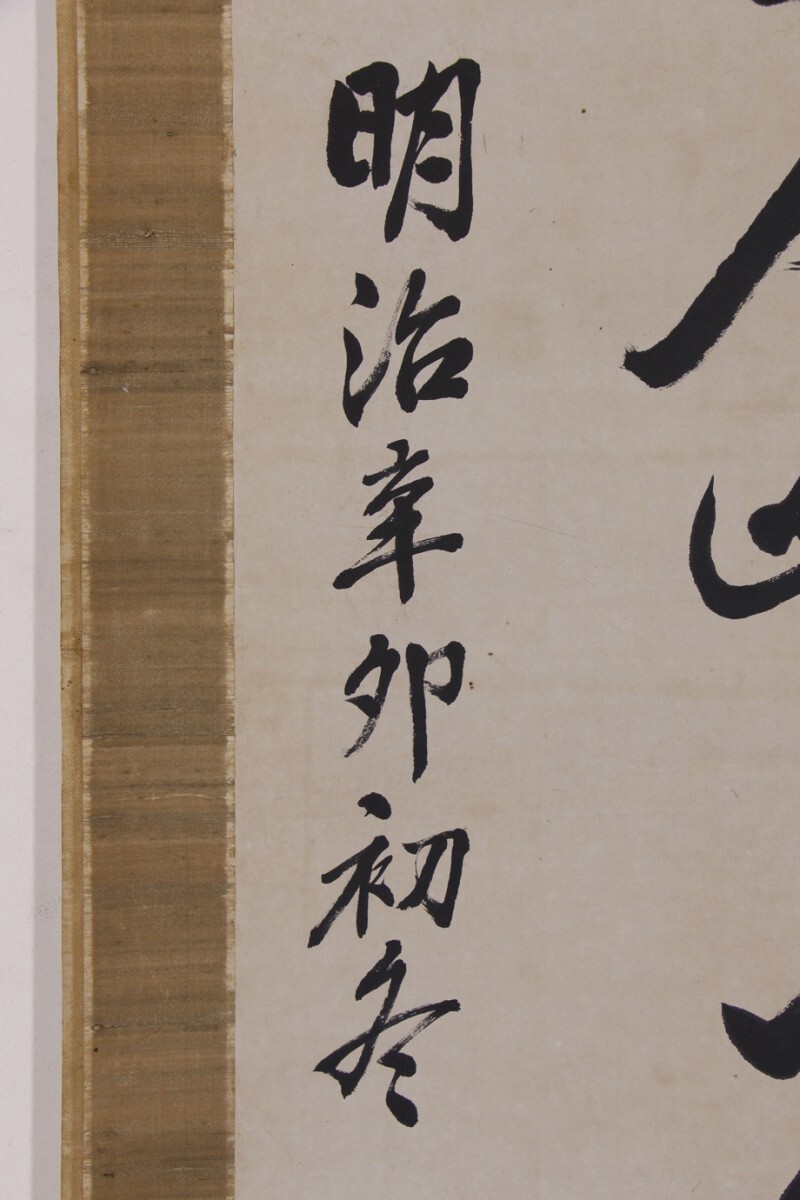 明治辛卯初冬